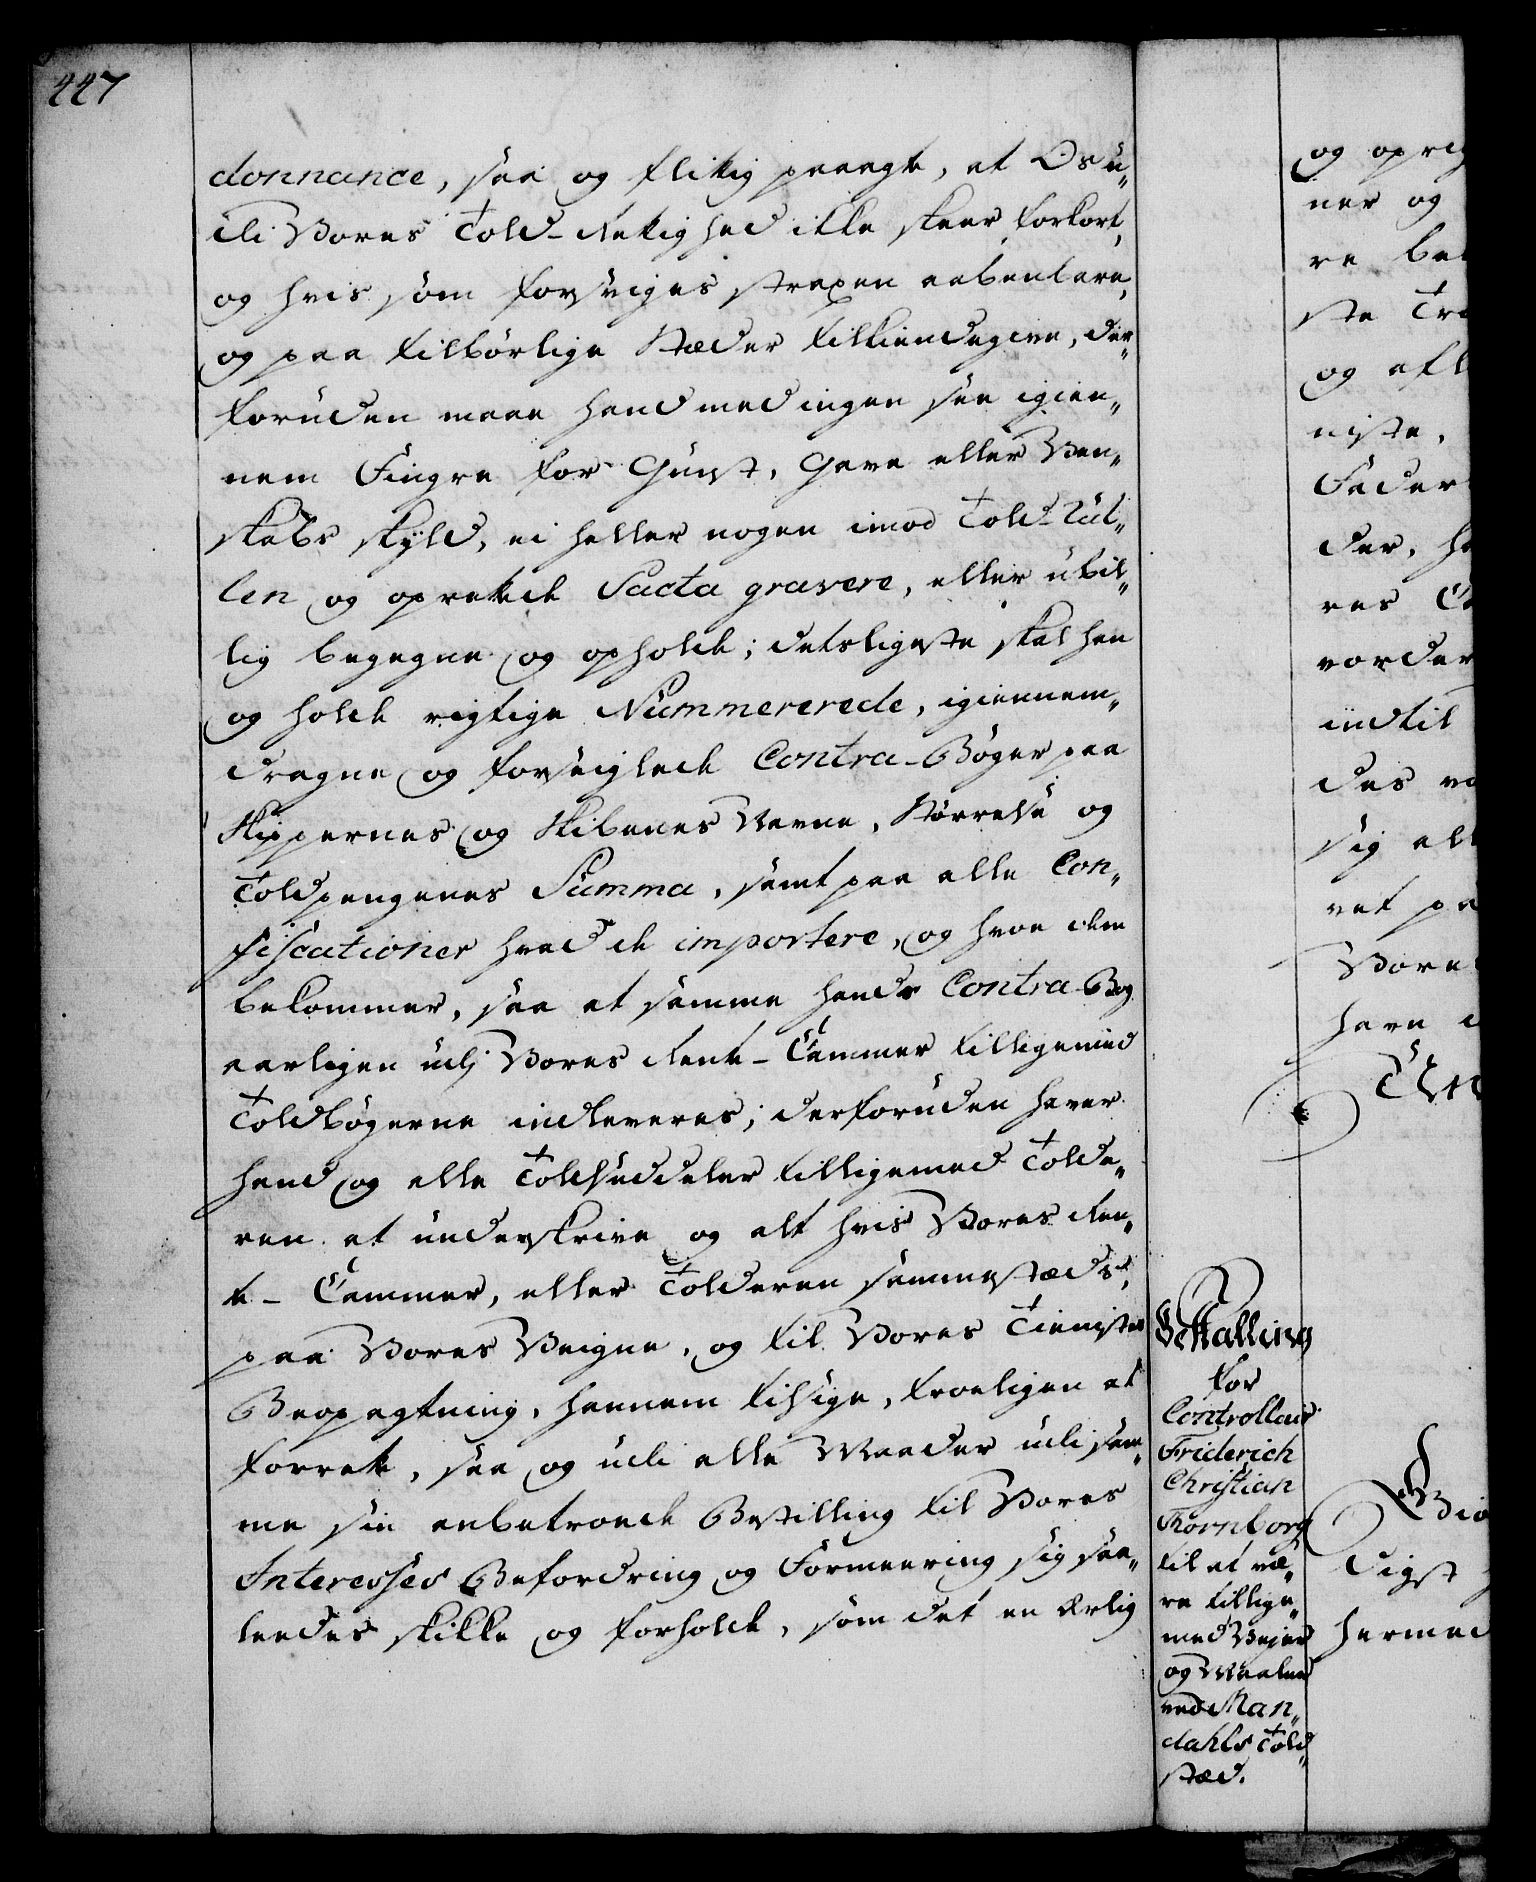 447
donnance, saa og flittig paaagte, at Os u„
di Vores Told-Rettighed ikke skeer forkort,
og hvis som forsviges straxen aabenbare,
og paa tilbørlige Stæder tilkiendegive, der„
foruden maae hand med ingen see igien„
nem Fingre for Gunst, Gave eller Ven„
skabs skyld, ei heller nogen imod Told-Rul„
len og oprettede Pacta gravere, eller ubil„
lig begegne og opholde; desligeste skal han
og holde rigtige Nummererede, igiennem„
dragne og forseiglede Contra-Bøger paa
Skippernes og Skibenes Navne, Størrelse og
Toldpengenes Summa, samt paa alle Con„
fiscationer hvad de importere, og hvo dem
bekommer, saa at samme hands Contra-Bog
aarligen udj Vores Rente-Cammer tilligemed
Toldbøgerne indleveres; derforuden haver
hand og alle Toldsedeler tilligemed Tolde„
ren at underskrive og alt hvis Vores Ren„
te-Cammer, eller Tolderen sammestæds,
paa Vores Veigne, og til Vores Tienistes
Beopagtning, hannem tilsige, troeligen at
forrette, saa og udi alle Maader udi sam„
me sin anbetroede Bestilling til Vores
Interesses Befordring og Formeering sig saa„
ledes skikke og forholde, som det en ærlig
Bestalling
for
Controlleur
Friderich
Christian
Thornborg
til at væ„
re tillige„
med Vejer
og Maaler
ved Man„
dahls Told„
stæd.
og opri
ner og
re be
ste Tro
og aft
niste,
Fader
der, h
res
vorder
indtil
des
sig al
ret pa
Vore
have
digst
hermed